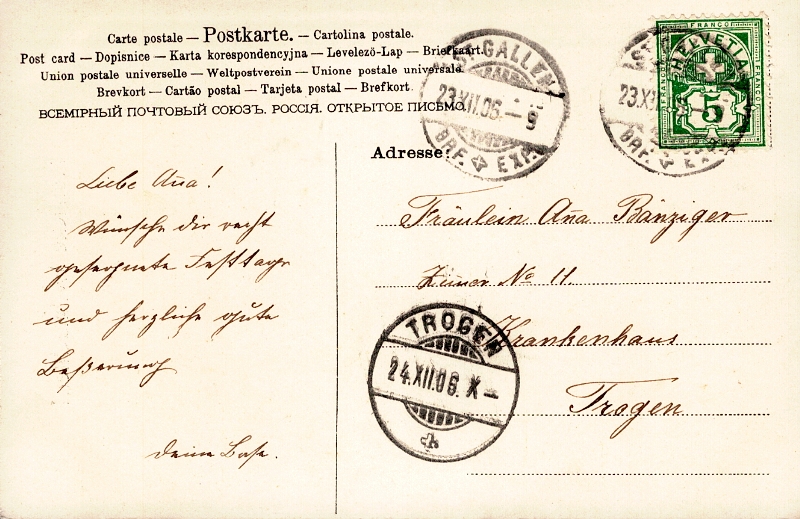 Carte postale — Postkarte. — Cartolina postale.
Post card — Dopisnice — Karta korespondencyjna — Levelező-Lap — Briefkaart.
Union postale universelle — Weltpostverein — Unione postale universale.
Brevkort — Cartão postal — Tarjeta postal — Brefkort.
ВСЕМІРНЫЙ ПОЧТОВЫЙ СОЮЗЪ. РОССІЯ. ОТКРЫТОЕ ПИСЬМО.
ST. GALLEN
23.XII.06. — 9
BRF. EXP.
ST. G
23.XII
BRF. EXP.
HELVETIA
FRANCO
FRANCO
5
Adresse:
Liebe Aña!
Wünsche dir recht
gesegnete Festtage
und herzliche gute
Beßerung
deine Base.
Fräulein Aña Bänziger
Zimer No 11.
Krankenhaus
Trogen
TROGEN
24.XII.06. X —